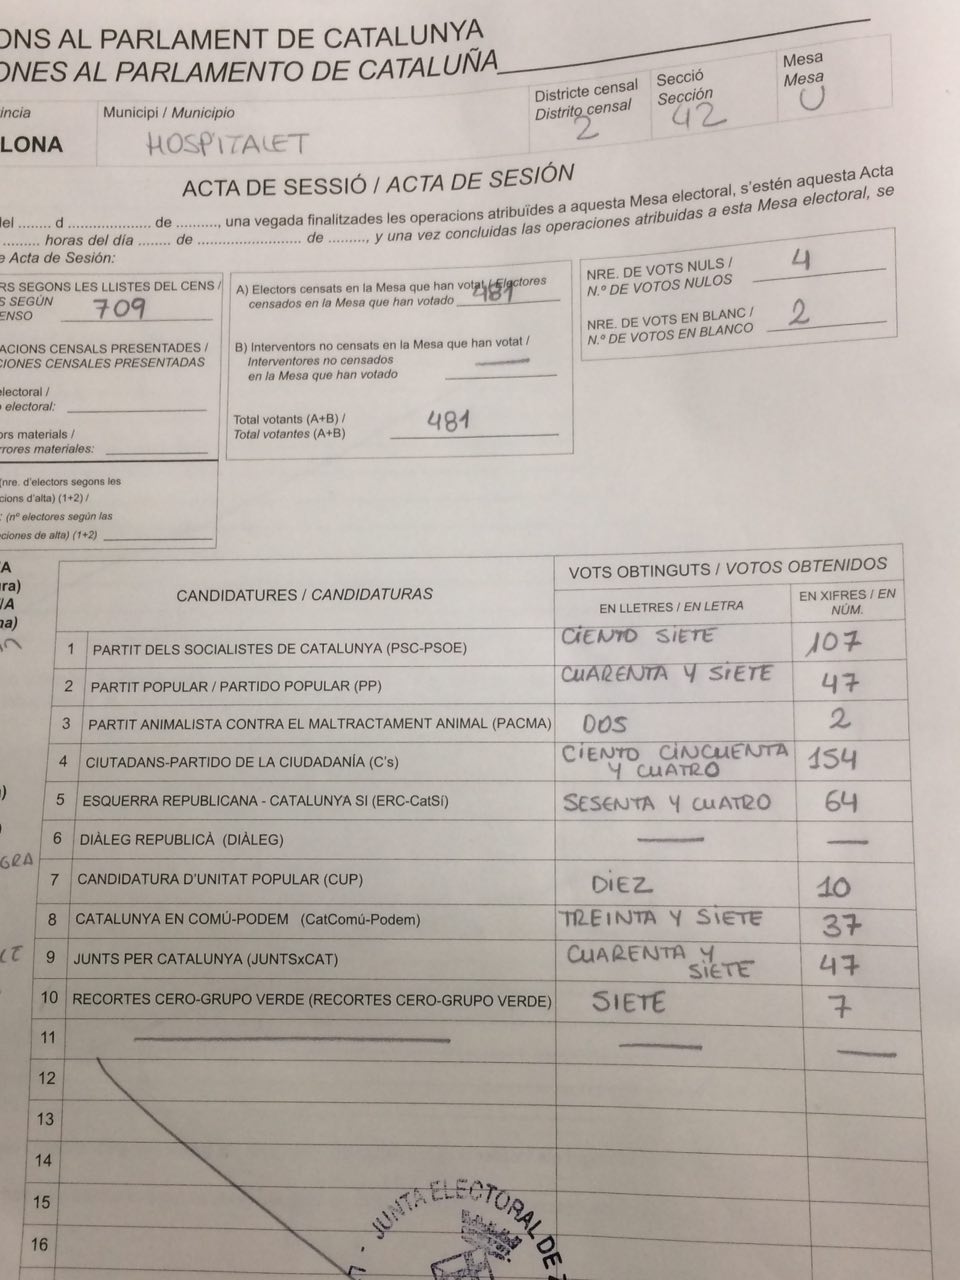 ONS AL PARLAMENT DE CATALUNYA
ONES AL PARLAMENTO DE CATALUÑA
incia
LONA
Municipi / Municipio
HOSPITALET
Districte censal
Distrito censal
2
Secció
Sección
42
Mesa
Mesa
U
ACTA DE SESSIÓ / ACTA DE SESIÓN
del ........ d .................... de .........., una vegada finalitzades les operacions atribuïdes a aquesta Mesa electoral, s'estén aquesta Acta
......... horas del día ........ de ......................... de ........., y una vez concluidas las operaciones atribuidas a esta Mesa electoral, se
e Acta de Sesión:
RS SEGONS LES LLISTES DEL CENS /
S SEGÚN
ENSO 709
ACIONS CENSALS PRESENTADES /
CIONES CENSALES PRESENTADAS
electoral /
o electoral:
ors materials /
rrores materiales:
(nre. d'electors segons les
cions d'alta) (1+2) /
: (nº electores según las
ciones de alta) (1+2)
A) Electors censats en la Mesa que han votat / Electores
censados en la Mesa que han votado 481
B) Interventors no censats en la Mesa que han votat /
Interventores no censados
en la Mesa que han votado
Total votants (A+B) /
Total votantes (A+B) 481
NRE. DE VOTS NULS /
N.º DE VOTOS NULOS 4
NRE. DE VOTS EN BLANC /
N.º DE VOTOS EN BLANCO 2
A
ra)
/A
na)
GRA
CANDIDATURES / CANDIDATURAS
VOTS OBTINGUTS / VOTOS OBTENIDOS
EN LLETRES / EN LETRA
EN XIFRES / EN
NÚM.
1 PARTIT DELS SOCIALISTES DE CATALUNYA (PSC-PSOE) CIENTO SIETE 107
2 PARTIT POPULAR / PARTIDO POPULAR (PP) CUARENTA Y SIETE 47
3 PARTIT ANIMALISTA CONTRA EL MALTRACTAMENT ANIMAL (PACMA) DOS 2
4 CIUTADANS-PARTIDO DE LA CIUDADANÍA (C's) CIENTO CINCUENTA
Y CUATRO 154
5 ESQUERRA REPUBLICANA - CATALUNYA SI (ERC-CatSí) SESENTA Y CUATRO 64
6 DIÀLEG REPUBLICÀ (DIÀLEG) — —
7 CANDIDATURA D'UNITAT POPULAR (CUP) DIEZ 10
8 CATALUNYA EN COMÚ-PODEM (CatComú-Podem) TREINTA Y SIETE 37
9 JUNTS PER CATALUNYA (JUNTSxCAT) CUARENTA Y
SIETE 47
10 RECORTES CERO-GRUPO VERDE (RECORTES CERO-GRUPO VERDE) SIETE 7
11 — — —
12
13
14
15
16
JUNTA ELECTORAL DE